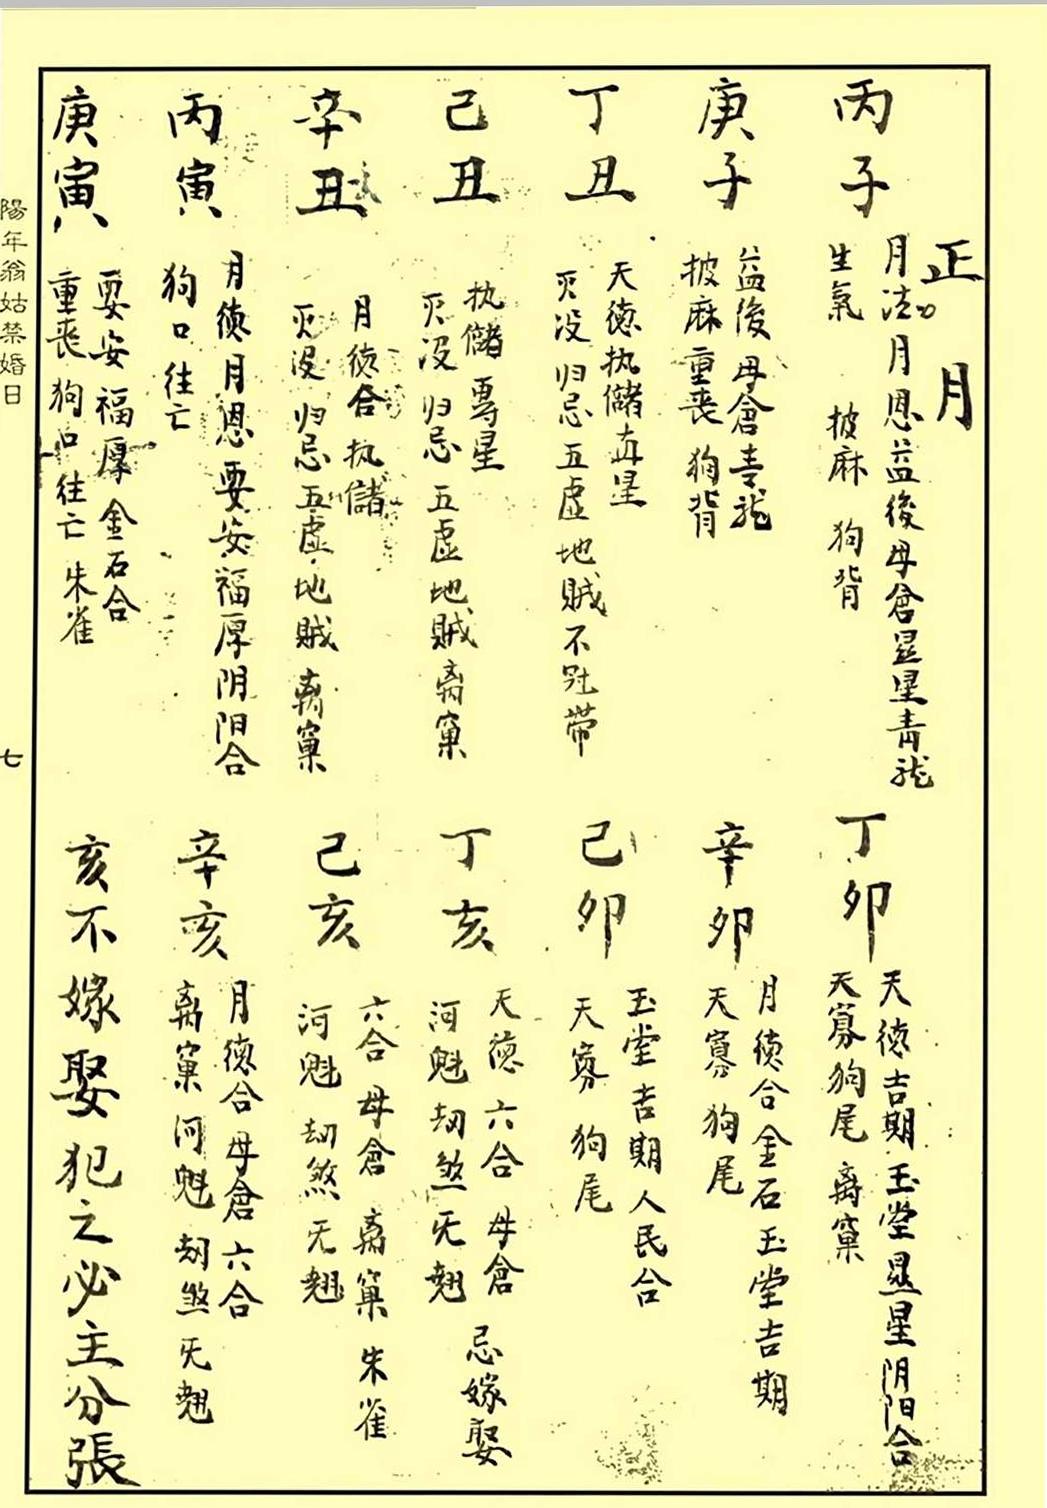 正月
丙子
月德月恩益後母倉显星青龙
生氣 披麻 狗背
庚子
益後母倉青龙
披麻重丧狗背
丁丑
天德执儲直星
灭没归忌五虚地贼不 带
己丑
执儲專星
灭没归忌五虚地贼离窠
辛丑
月德合执儲
灭没归忌五虚地贼离窠
丙寅
月德月恩要安福厚阴阳合
狗口往亡
庚寅
要安福厚金石合
重丧狗口往亡朱雀
丁卯
天德吉期玉堂显星阴阳合
天寡狗尾离窠
辛卯
月德合金石玉堂吉期
天寡狗尾
己卯
玉堂吉期人民合
天寡狗尾
丁亥
天德六合母倉忌嫁娶
河魁劫煞无翘
己亥
六合母倉离窠朱雀
河魁劫煞无翘
辛亥
月德合母倉六合
离窠河魁劫煞无翘
亥不嫁娶犯之必主分張
陽年翁姑禁婚日
七